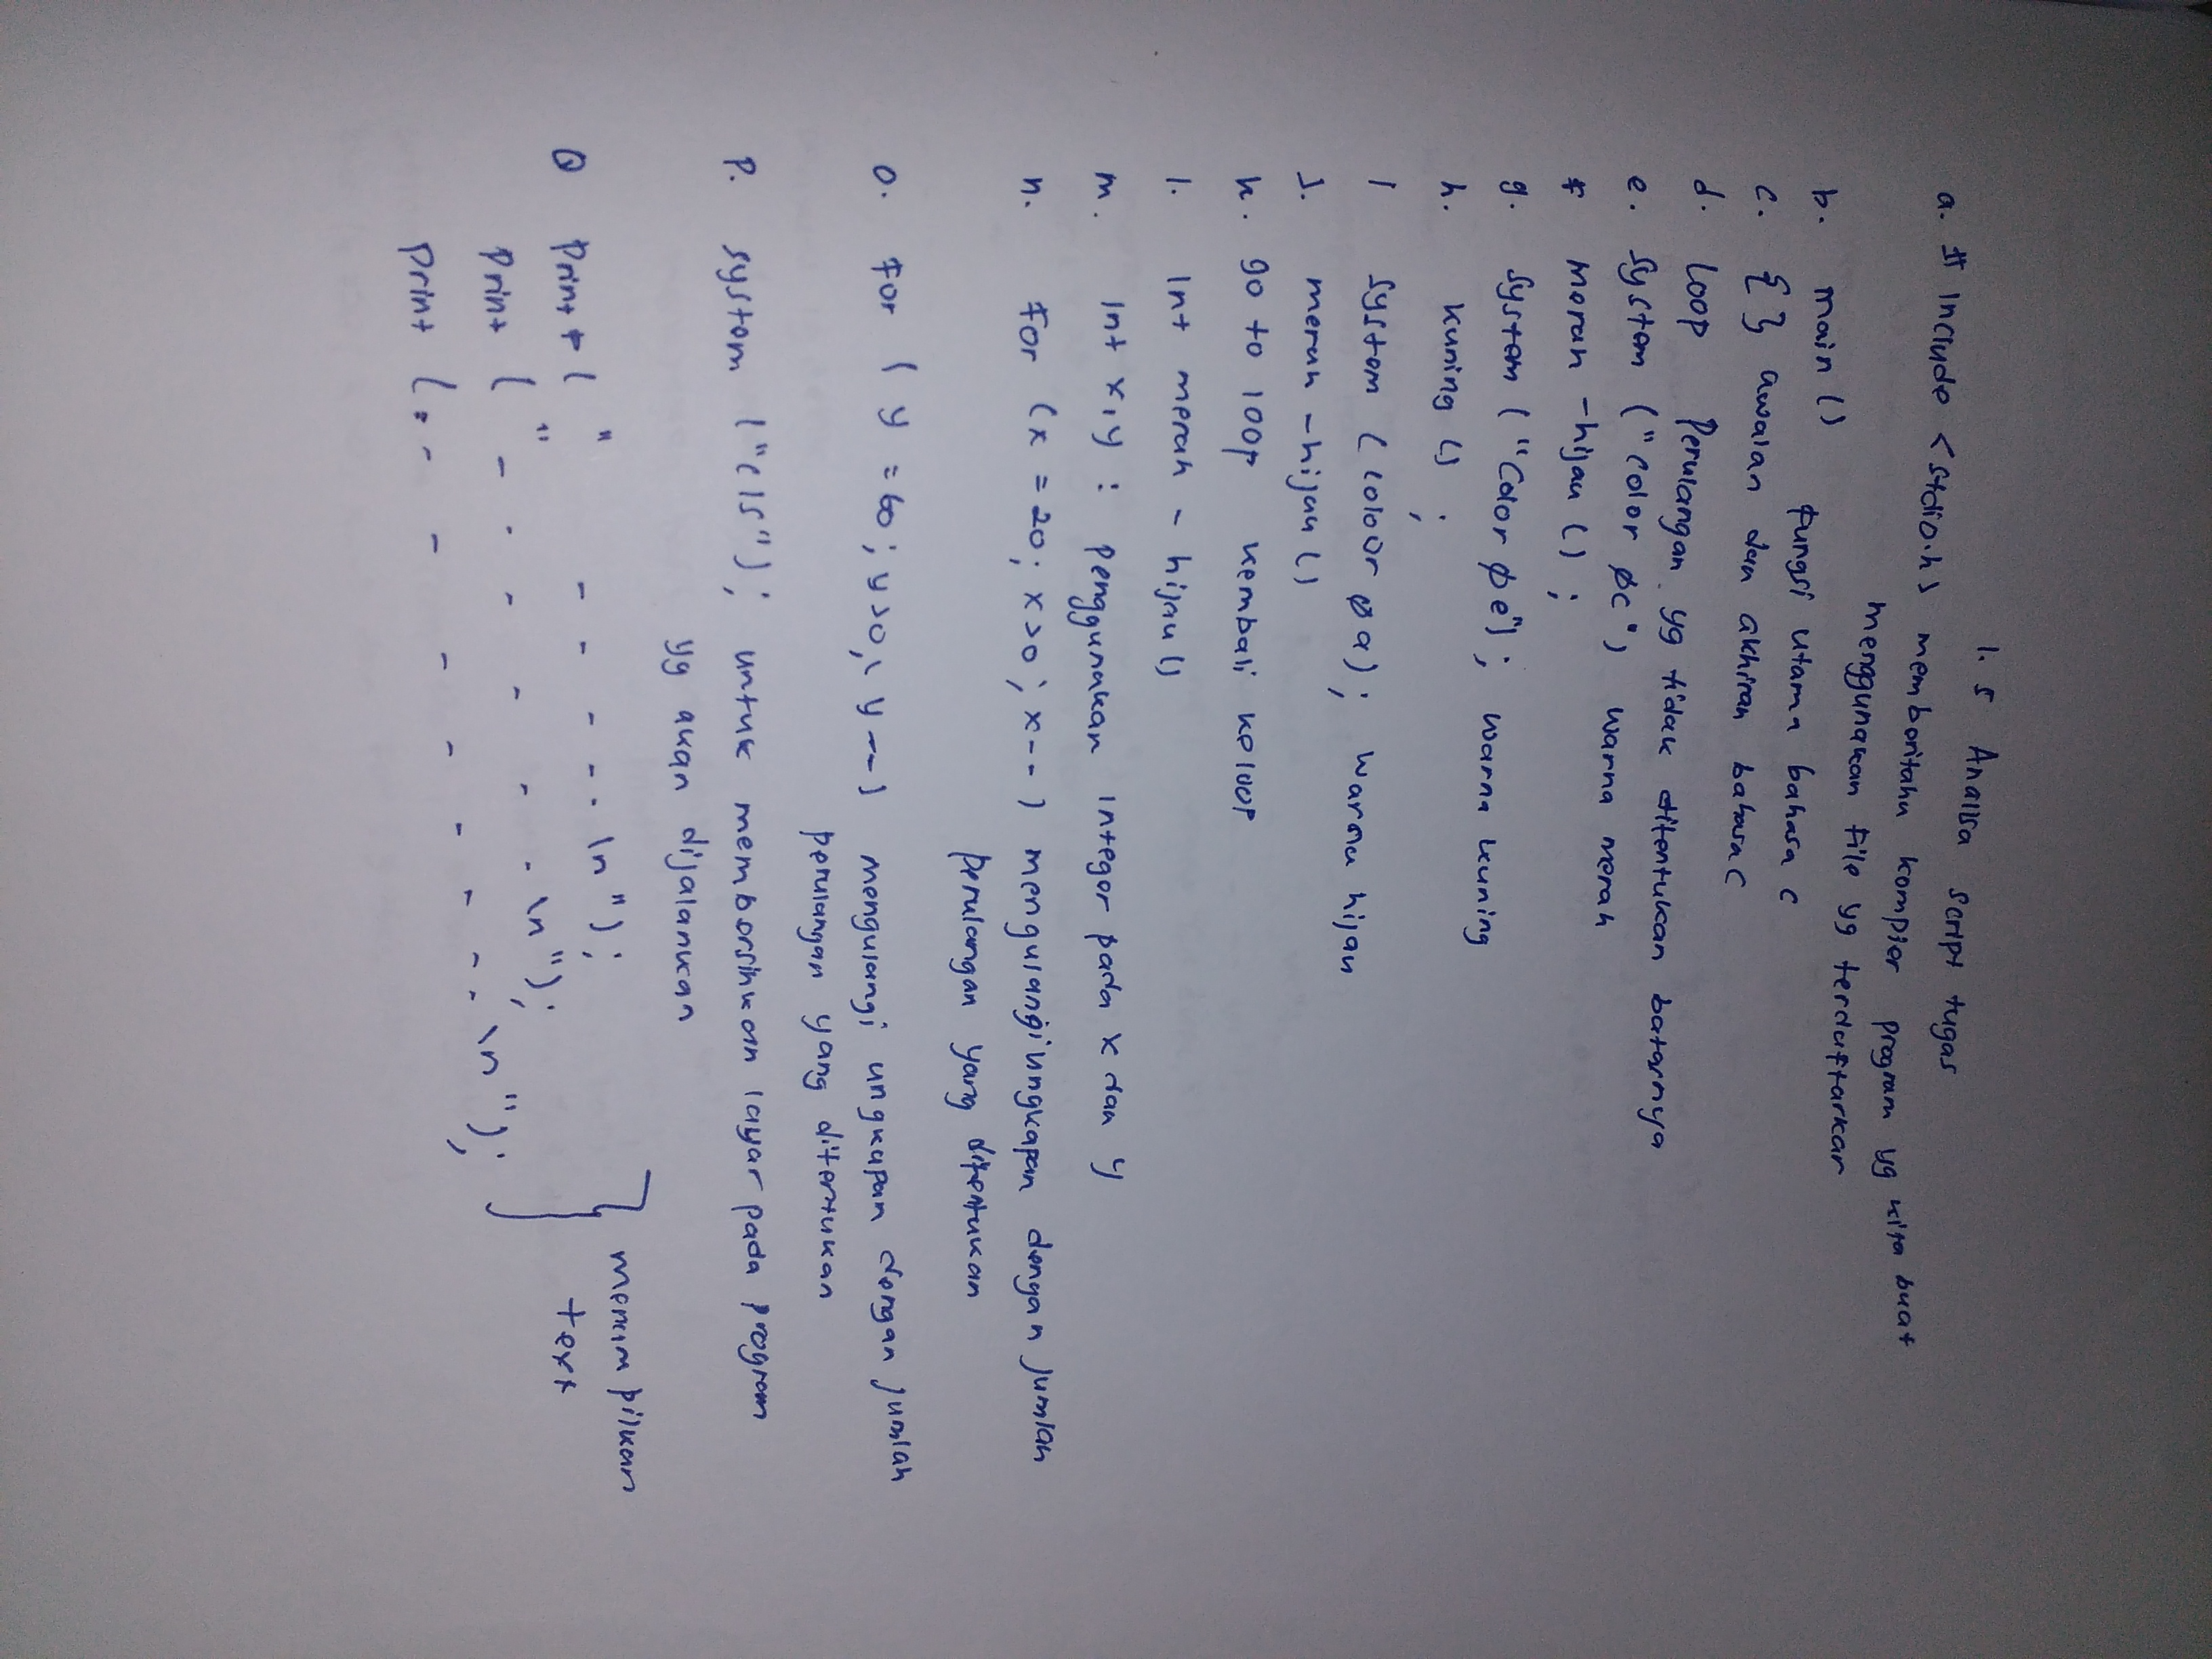 1.5 Analisa script tugas
a. # Include <stdio.h> memberitahu kompier program yg kita buat
menggunakan file yg terdaftarkan
b. main () fungsi utama bahasa c
c. { } awalan dan akhiran bahasa c
d. Loop Perulangan yg tidak ditentukan batasnya
e. System ("color øc") warna merah
f merah -hijau () ;
g. System ("Color øe"); warna kuning
h. kuning () ;
I System (coloor øa); warna hijau
J. merah -hijau ()
k. go to loop kembali keloop
l. Int merah - hijau ()
m. Int x,y : penggunakan integer pada x dan y
n. For (x = 20; x>0; x--) mengulangi ungkapan dengan jumlah
perulangan yang ditentukan
o. For ( y = 60; y>0; y--) mengulangi ungkapan dengan jumlah
perulangan yang ditentukan
P. system ("cls"); untuk membersihkan layar pada program
yg akan dijalankan
Q Print f ( " - - - - - \n");
Print ( " - - - - - - \n"); } menampilkan
Print ( " - - - - - - - - - \n"); text